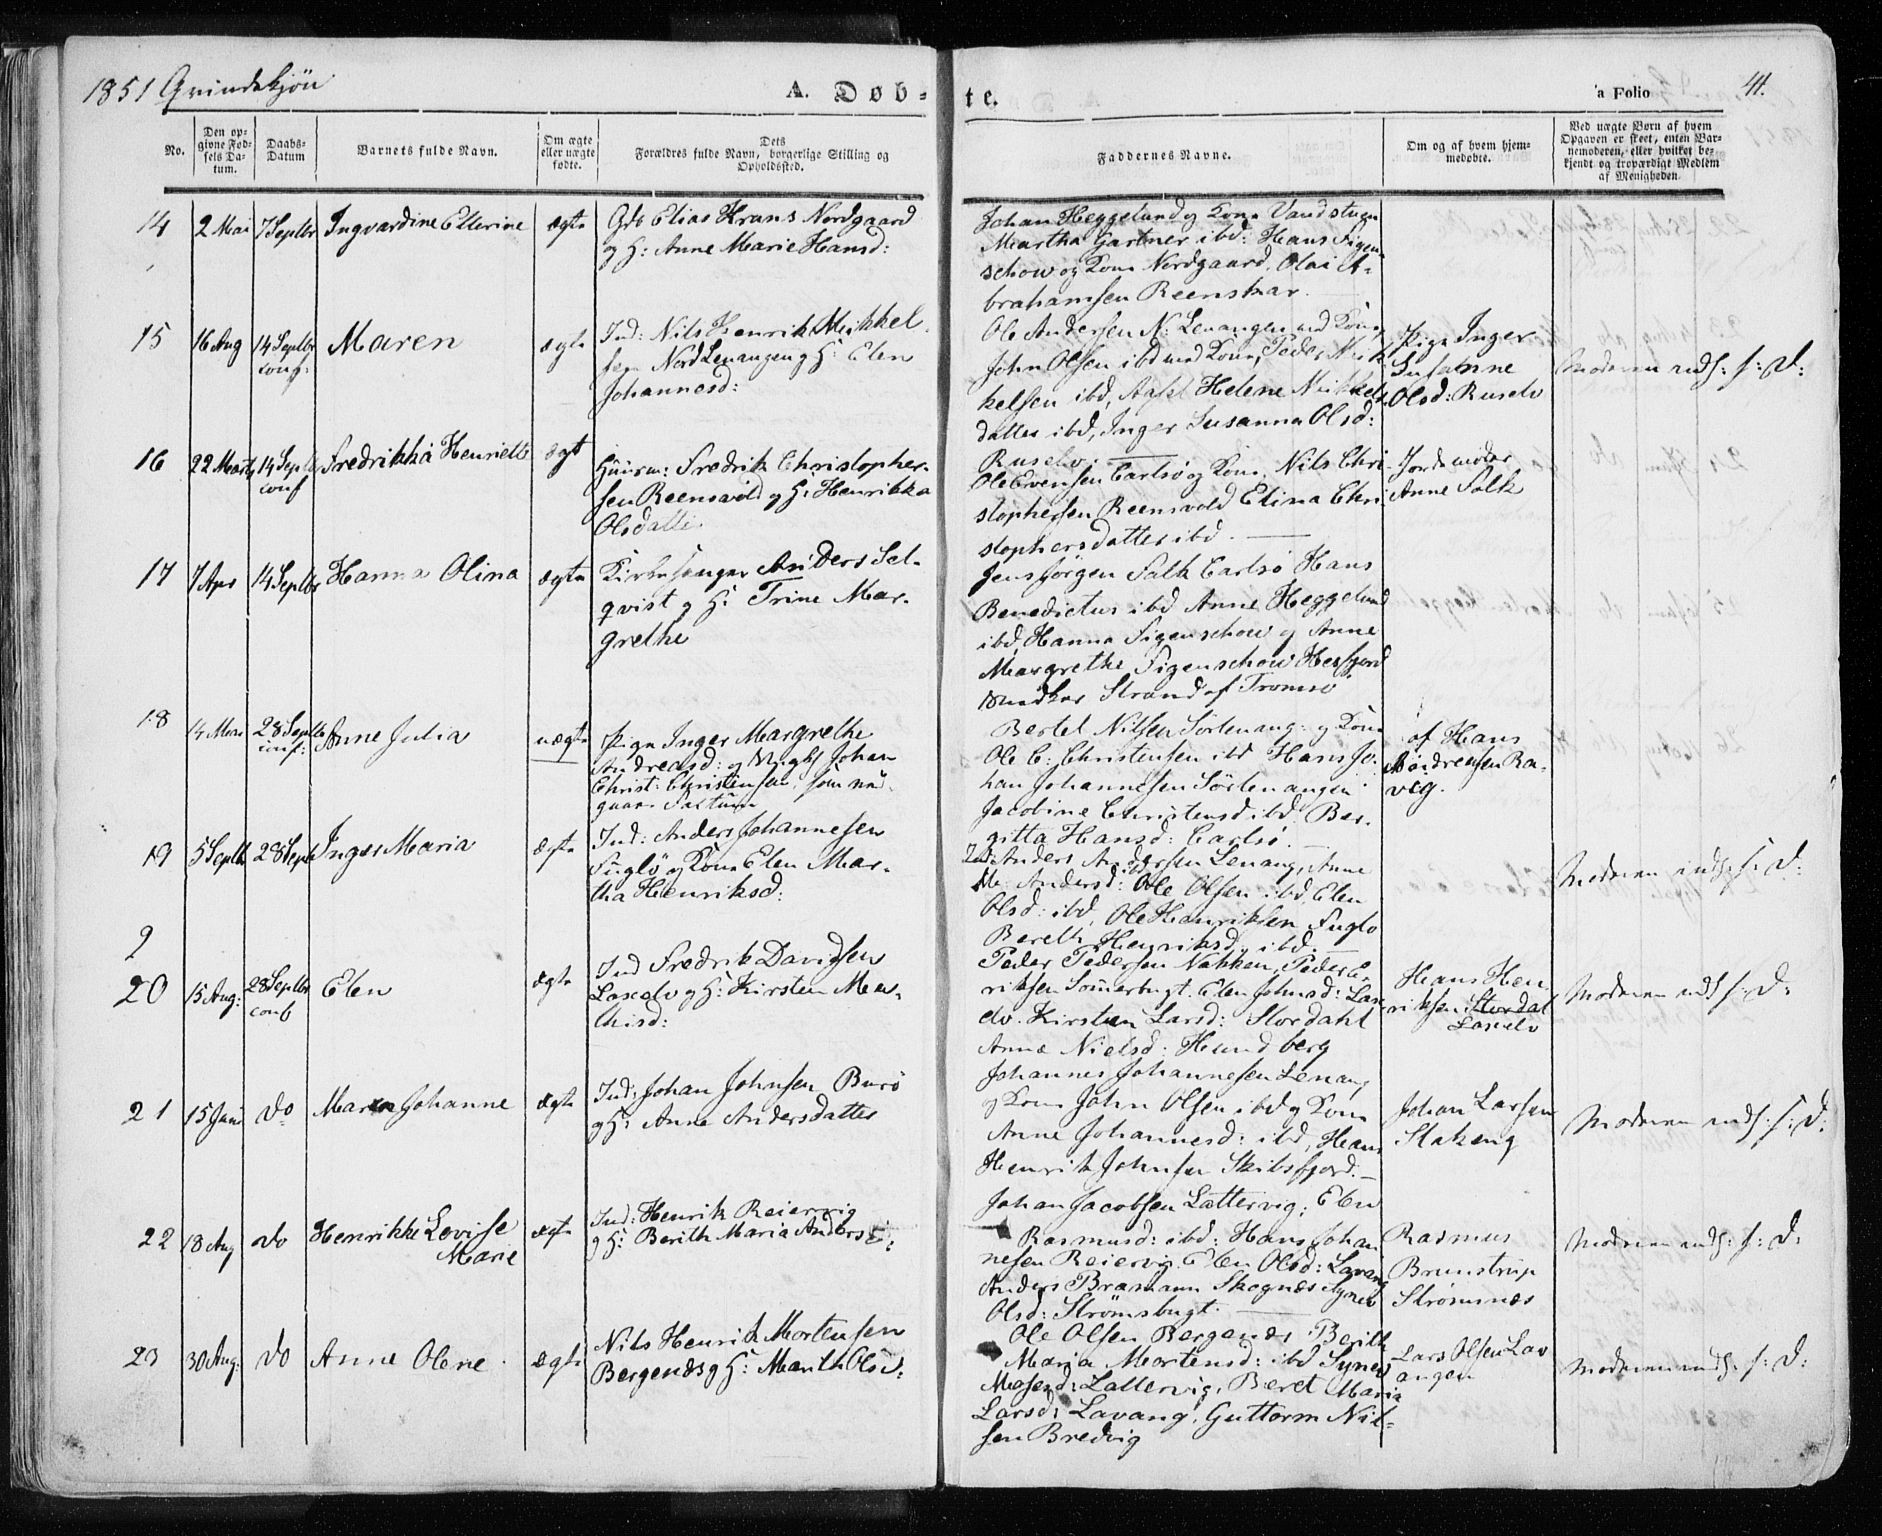 1851 Grindskjön
A. Døb-
te.
a Folio
41.
No.
Den op-
givne Fød-
sels Da-
tum.
Daabs-
Datum
Barnets fulde Navn.
Om ægte
eller uægte
fødte.
Dets
Forældres fulde Navn, borgerlige Stilling og
Opholdssted.
Faddernes Navne.
Om og af hvem hjem-
medøbte.
Ved uægte Børn af hvem
Opgaven er skeet, enten Bar-
nemoderen, eller hvilket be-
kjendt og troværdigt Medlem
af Menigheden.
14
2 Mai
7 Septbr
Ingvardine Ellerine
ægte
Elias Krans Nordgaard
og H: Anne Marie Hansd:
Johan Heggelund og Kone Vandstuen
Martha Gartner ibd: Hans Figen
schow og Kone Nordgaard, Olai A-
brahamsen Reenskar
15
16 Aug
14 Septbr
conf:
Maren
ægte
Ind: Nils Henrik Mikkel
sen Nord Lenangen og H: Elen
Johannesd:
Ole Andersen N: Lenangen med Kone,
John Olsen ibd med Kone, Peder Mik
kelsen ibd, Helene Mikkels
datter ibd, Inger Susanna Olsd:
Ruselv.
Pige Inger
Susanne
Olsd: Ruselv
Moderen inds: f: D:
16
22 Marts
14 Septbr
conf
Fredrikka Henriette
ægt
Huusm: Fredrik Christopher-
sen Reensvold og H: Henrikka
Olsdatter
Ole Evensen Carlsø og Kone, Nils Chri
stophersen Reensvold Elina Chri
stophersdatter ibd.
Jordemoder
Anne Falk
17
7 Apr
14 Septbr
Hanna Olina
ægte
Kirkesanger Anders Sel-
qvist og H: Trine Mar-
grethe
Jens Jörgen Falk Carlsö Hans
Benedictus ibd Anne Heggelund
ibd, Hanna Figenschow og Anne
Margrethe Figenschow Hesfjord
Strand af Tromsø
18
14 Mai
28 Septbr
conf:
Anne Julia
uægte
Pige Inger Margrethe
Andreasd: og Johan
Christ: Christensen,
Bertel Nilsen Sörlenang: og Kone
Ole C: Christensen ibd Hans Jo-
han Johannesen Sörlenangen
Jacobine Christensd ibd: Ber-
gitta Hansd: Carlsö.
af Hans
Andreasen Ra-
vig.
19
5 Septbr
28 Septb
Inger Maria
ægte
Ind: Anders Johannesen
Fuglö og Kone Elen Mar-
tha Henriksd:
Ind: Anders Andersen Lenang, Anne
M: Andersd: ibd Ole Olsen ibd, Elen
Olsd: ibd, Ole Henriksen Fuglø
Bereth Henriksd, ibd.
Moderen inds: f: D:
9
20
15 Aug:
28 Septbr
conf
Elen
ægte
Ind Fredrik Davidsen
Laxelv og H: Kirsten Mar-
thisd:
Peder Pedersen Nakken, Peder E-
riksen Sommerbugt. Elen Johnsd: Lax
elv. Kirsten Larsd: Stordahl
Anne Nielsd: Hundberg
Hans Hen
riksen Stordal
Laxelv
Moderen inds f: D:
21
15 Juni
do
Maren Johanne
ægte
Ind: Johan Johnsen Burö
og H: Anne Andersdatter
Johannes Johannesen Lenang
og Kone John Olsen ibd og Kone
Anne Johannesd: ibd, Hans
Henrik Johnsen Skibsfjord.
Johan Larsen
Stakeng
Moderen inds: f: D:
22
18 Aug
do
Henrikke Lovise
Marie
ægte
Ind: Henrik Reiervig
og H: Berith Maria Andersd:
Johan Jacobsen Lattervig; Elen
Rasmusd: ibd: Hans Johan
nesen Reiervig Elen Olsd: Lavang
Anders Bramann Skognæs Synev
Olsd: Strømsbugt.
Rasmus
Brunstrup
Strömnæs
Moderen inds: f: D:
23
30 Aug:
do
Anne Olene.
ægte
Nils Henrik Mortensen
Bergenæs og H: Marith Olsd:
Ole Olsen Bergenæs Berith
Maria Mortensd: ibd Synev
Mosesd: Lattervig, Beret Maria
Larsd: Lavang, Guttorm Nil-
sen Bredvig
Lars Olsen Lav
angen
Moderen inds: f: D: